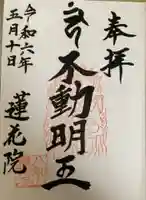 奉拝
不動明王
令和六年
五月十日
蓮花院